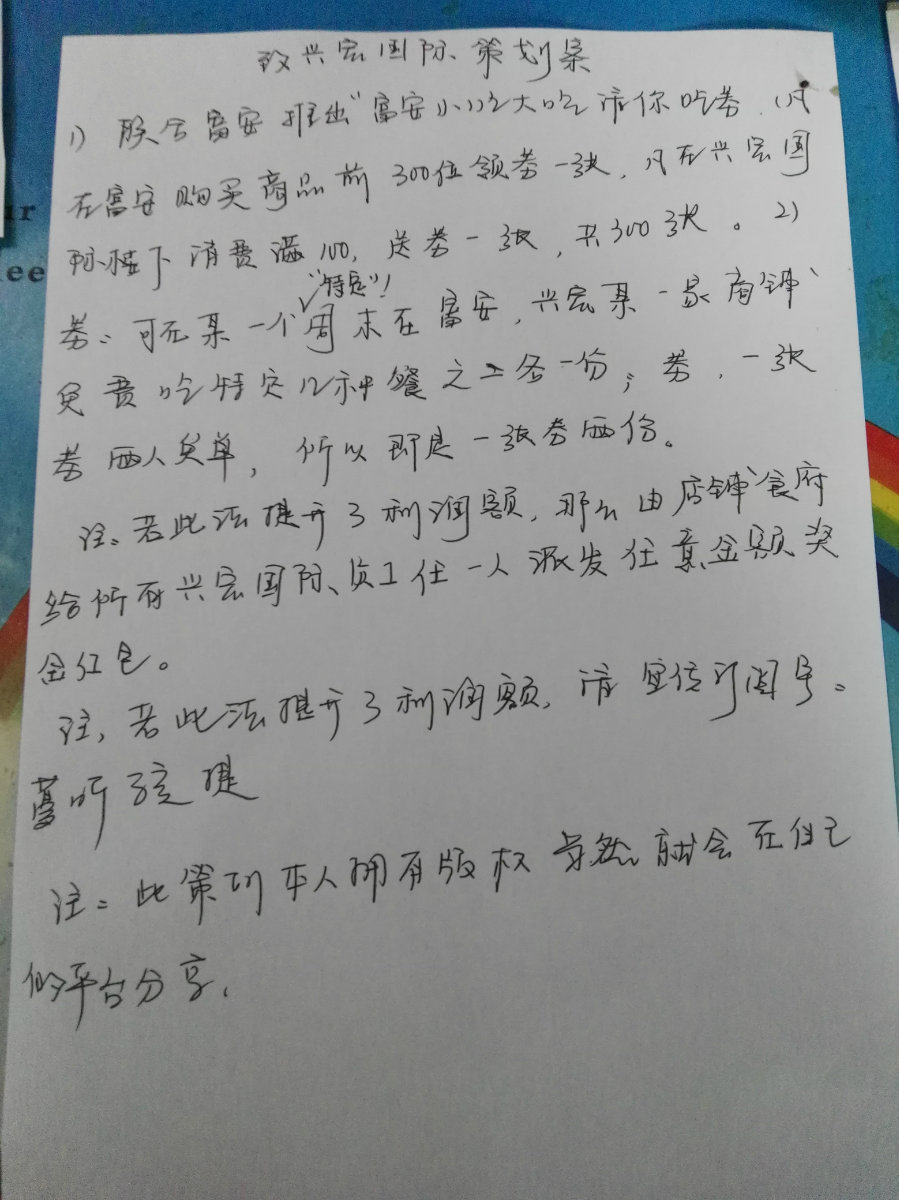 致兴宏国际策划案
1) 联合富安推出"富安小吃大吃请你吃券，凡
在富安购买商品前300位领券一张，凡在兴宏国
际楼下消费满100，送券一张，共300张。2)
"特定"!
券：可在某一个周末在富安，兴宏某一家商铺
免费吃特定几种餐之二各一份；券，一张
券两人免单，所以即是一张券两份。
注、若此法提升了利润额，那么由店铺食府
给所有兴宏国际、员工任一人派发任意金额奖
金红包。
注，若此法提升了利润额，请宣传订阅号。
听 提
注：此策划本人拥有版权 当然就会在自己
的平台分享，
ur
ee